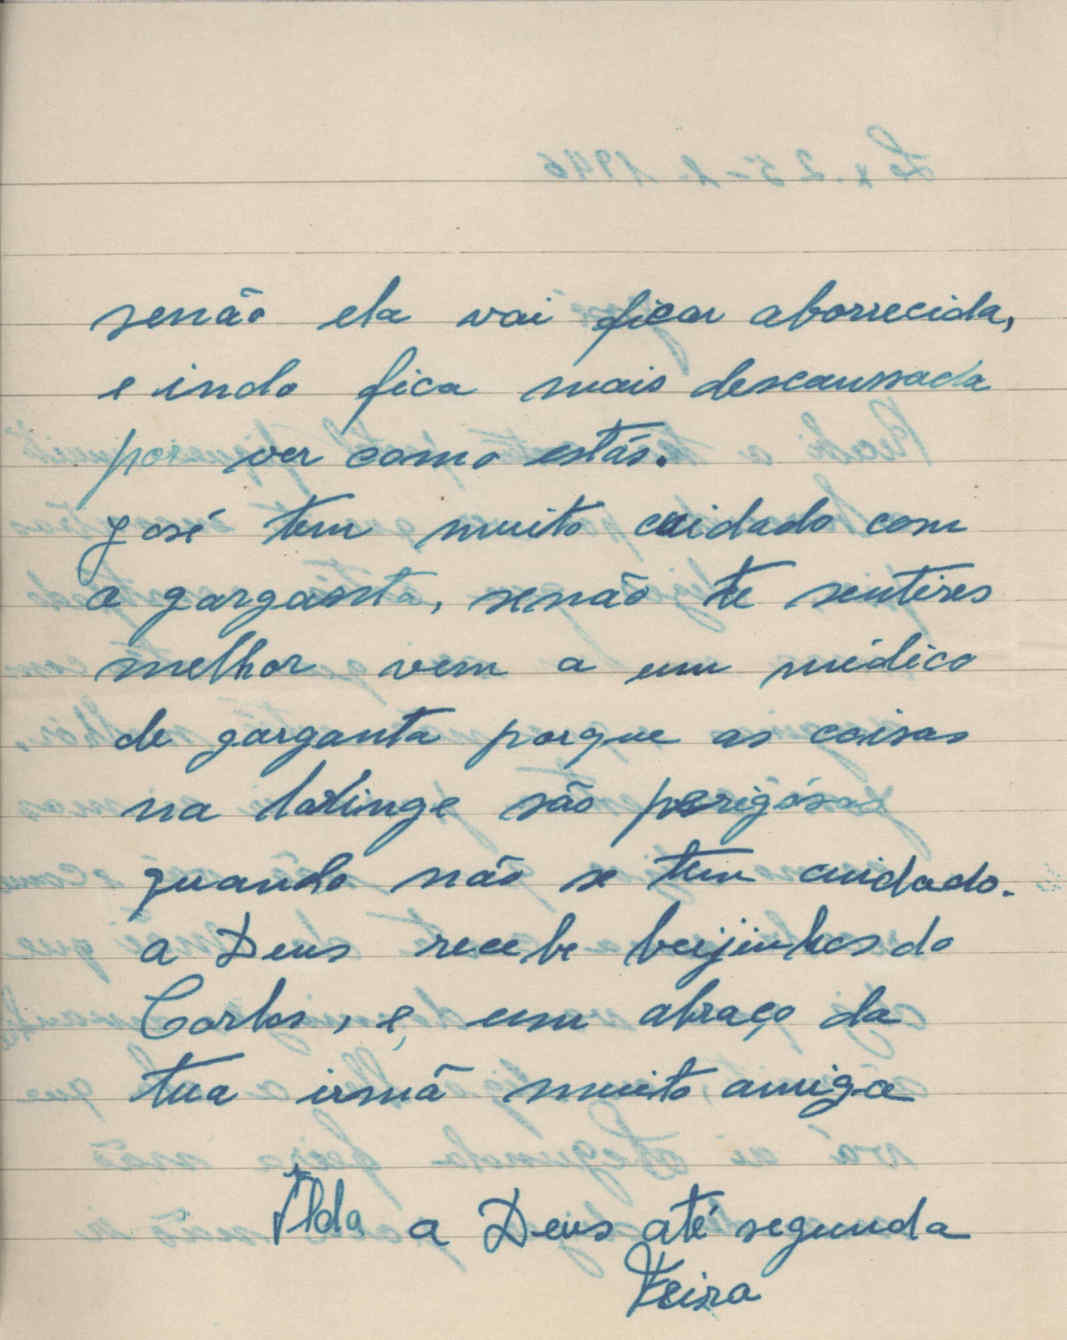 senão ela vai ficar aborrecida,
e indo fica mais descaussada
por ver como estás.
José tem muito cuidado com
a garganta, senão te sentires
melhor vem a um médico
de garganta porque as coisas
na laringe são perigósas
quando não se tem cuidado.
a Deus recebe beijinhos do
Carlos, e um abraço da
tua irmã muito amiga
Alda a Deus até segunda
Feira